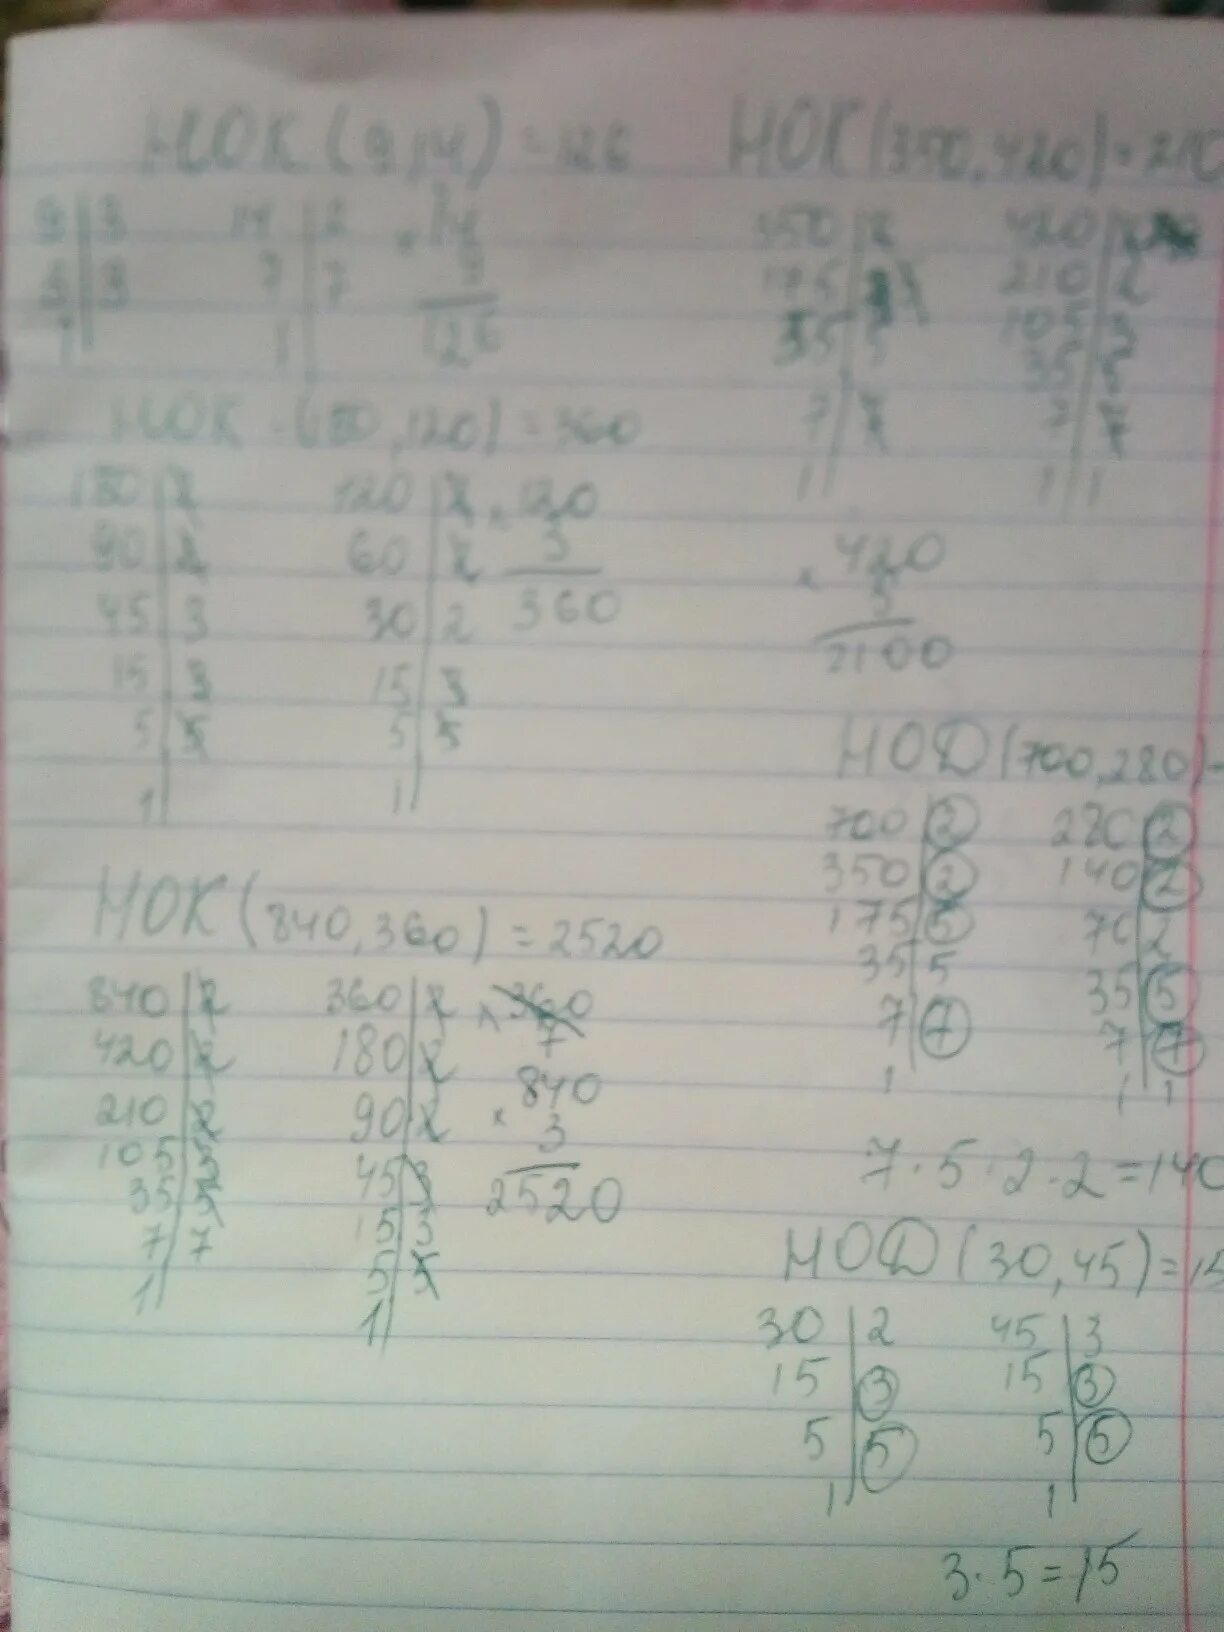 НОК (9,14) = 126
9 | 3
3 | 3
1 |
14 | 2
7 | 7
1 |
× 14
9
126
НОК (180,120) = 360
180 | 2
90 | 2
45 | 3
15 | 3
5 | 5
1 |
120 | 2
60 | 2
30 | 2
15 | 3
5 | 5
1 |
× 120
3
360
НОК (840,360) = 2520
840 | 2
420 | 2
210 | 2
105 | 3
35 | 5
7 | 7
1 |
360 | 2
180 | 2
90 | 2
45 | 3
15 | 3
5 | 5
1 |
× 360
7
× 840
3
2520
НОК (350,420) = 210
350 | 2
175
35 | 5
7 | 7
1 |
420 | 2
210 | 2
105 | 3
35 | 5
7 | 7
1 | 1
× 420
5
2100
НОД (700,280) =
700 | 2
350 | 2
175 | 5
35 | 5
7 | 7
1
280 | 2
140 | 2
70 | 2
35 | 5
7 | 7
1 | 1
7 · 5 · 2 · 2 = 140
НОД (30,45) = 15
30 | 2
15 | 3
5 | 5
1 |
45 | 3
15 | 3
5 | 5
1 |
3 · 5 = 15